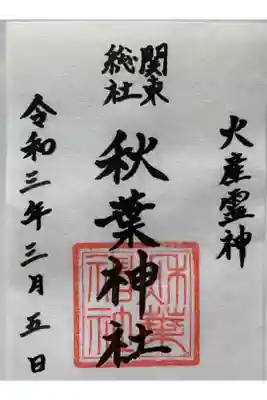 火産霊神
関東
総社
秋葉神社
令和三年三月五日
秋葉
神社